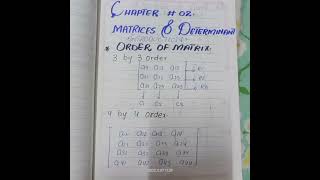 CHAPTER # 02:
MATRICES & DETERMINANT
* ORDER OF MATRIX:
3 by 3 order
a11 a12 a13 → R1
a21 a22 a23 → R2
a31 a32 a33 → R3
C1 C2 C3
4 by 4 order
a11 a12 a13 a14
a21 a22 a23 a24
a31 a32 a33 a34
a41 a42 a43 a44